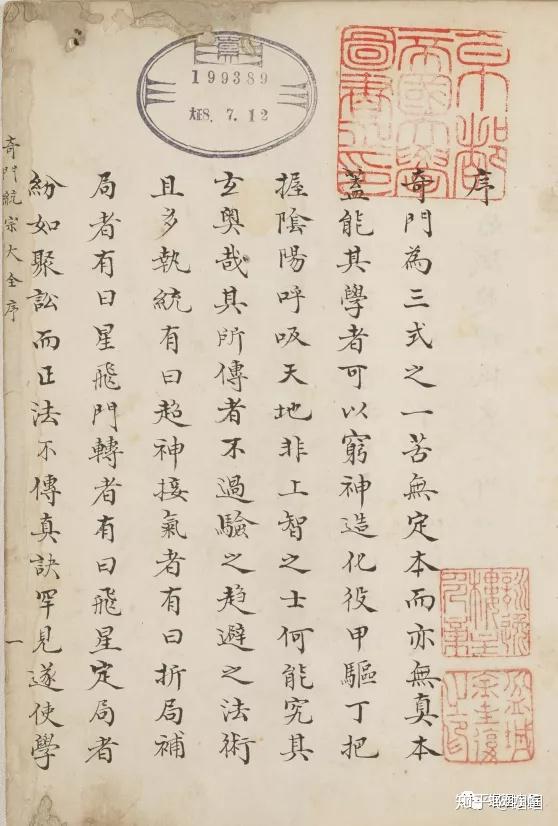 序
奇門為三式之一苦無定本而亦無真本
蓋能其學者可以窮神造化役甲驅丁把
握陰陽呼吸天地非上智之士何能究其
玄奧哉其所傳者不過驗之趋避之法術
且多執統有曰超神接氣者有曰折局補
局者有曰星飛門轉者有曰飛星定局者
紛如聚訟而正法不傳真訣罕見遂使學
奇門統宗大全序
一
199389
大正8.7.12
京都
帝國大學
圖書之印
知乎